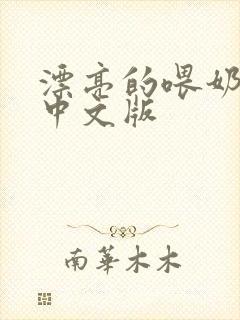 漂亮的喂奶
中文版
南华木木